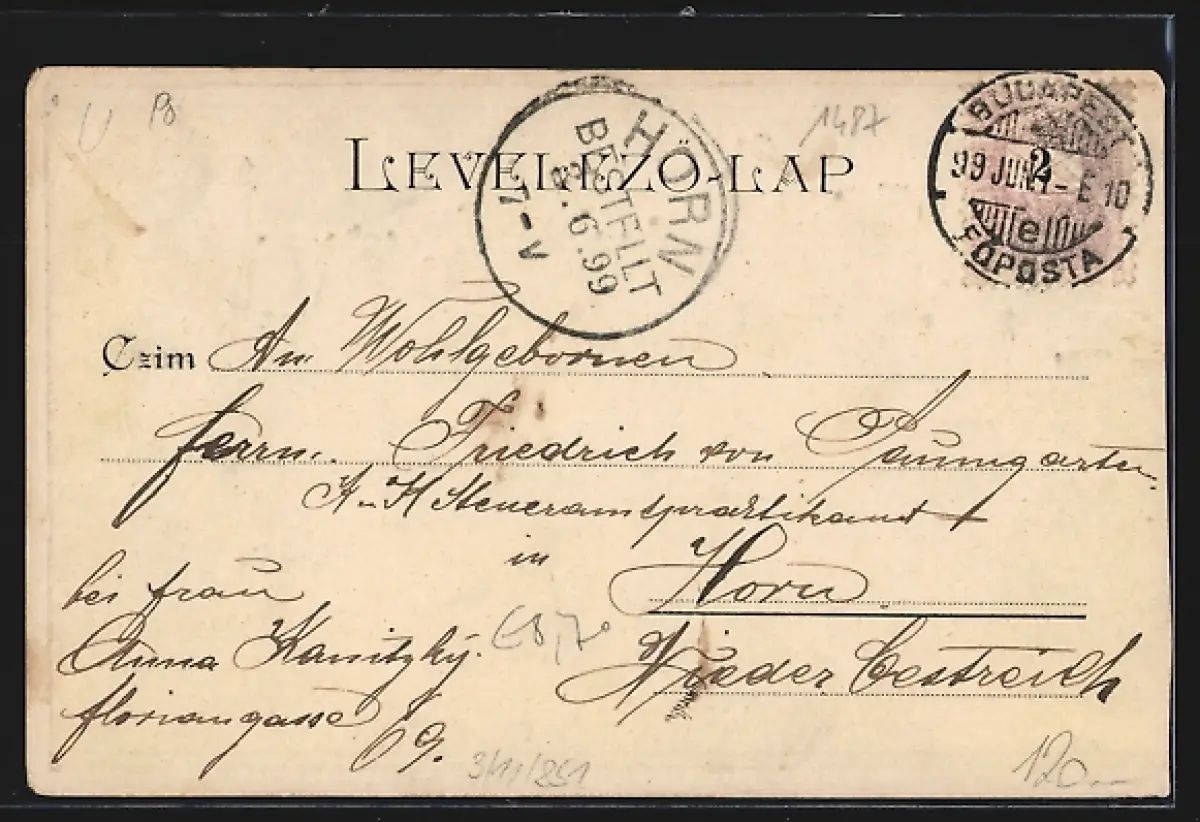 U Po
1487
LEVELEZŐ-LAP
HORN
BESTELLT
8.6.99
7-V
BUDAPEST
99 JUN - E 10
2
e
FŐPOSTA
Czim An Wohlgebornen
Herrn Friedrich von Paumgarten
K u K Steueramtspraktikant
in
Horn
Nieder Oestreich
bei Frau
Anna Kanitzky.
Floriangasse
69.
3/11/851
120.-